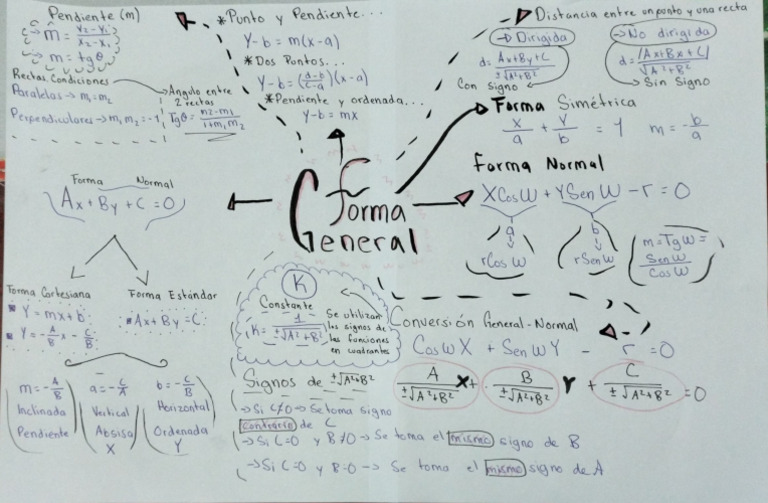 Pendiente (m)
m = Y₂-Y₁ / X₂-X₁
m = tg θ
Rectas Condiciones
Paralelas → m₁ = m₂
Perpendiculares → m₁ m₂ = -1
Angulo entre
2 rectas
Tg θ = m2-m1 / 1+m₁ m₂
*Punto y Pendiente...
Y-b = m(x-a)
*Dos Puntos...
Y-b = (d-b / c-a)(x-a)
*Pendiente y ordenada...
Y-b = mx
Distancia entre un punto y una recta
→ Dirigida
d = Ax+By+C / ±√A²+B²
Con Signo
→ No dirigida
d = |Ax+Bx+C| / √A²+B²
Sin Signo
Forma Simétrica
X/a + Y/b = 1 m = -b/a
Forma Normal
X Cos W + Y Sen W - r = 0
a
r Cos W
b
r Sen W
m = Tg W =
Sen W / Cos W
Forma
General
Forma Normal
Ax + By + C = 0
Forma Cartesiana
* Y = mx + b
* Y = -A/B x - C/B
Forma Estándar
* Ax + By = C
m = -A/B
Inclinada
Pendiente
a = -C/A
Vertical
Absisa
X
b = -C/B
Horizontal
Ordenada
Y
K
Constante
K = 1 / ±√A²+B²
Se utilizan
los signos de
las funciones
en cuadrantes
Signos de ±√A²+B²
→ Si C≠0 → Se toma signo
contrario de C
→ Si C=0 y B≠0 → Se toma el mismo signo de B
→ Si C=0 y B=0 → Se toma el mismo signo de A
Conversión General-Normal
Cos W X + Sen W Y - r = 0
A / ±√A²+B² X + B / ±√A²+B² Y + C / ±√A²+B² = 0